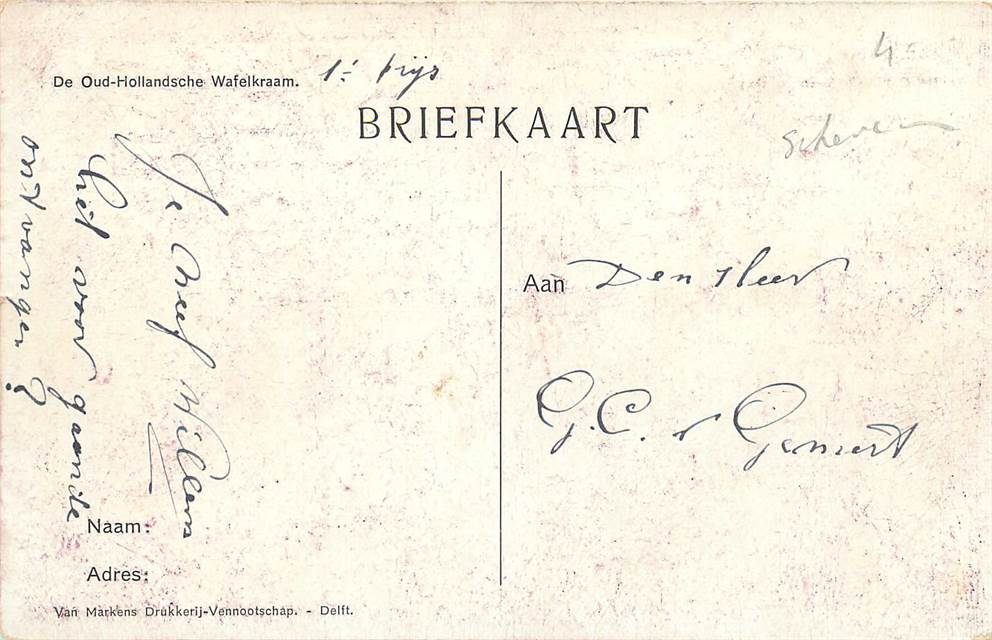 De Oud-Hollandsche Wafelkraam. 1e prijs
4
BRIEFKAART
Scheven
Aan Den Heer
G.C. v Gemert
Je Neef Willem
Het voorgaande
ontvangen?
Naam:
Adres:
Van Markens Drukkerij-Vennootschap. - Delft.